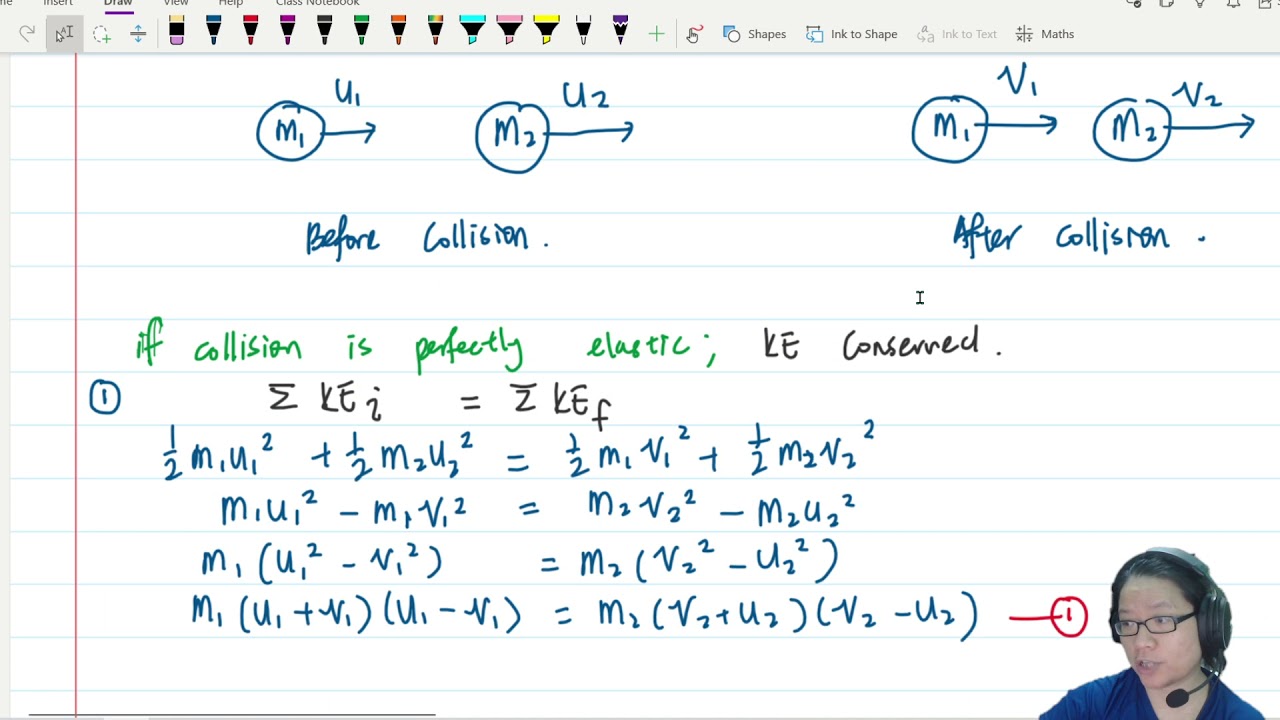 Insert Draw View Help Class Notebook
Shapes Ink to Shape Ink to Text Maths
u₁ u₂ v₁ v₂
m₁ m₂ m₁ m₂
Before Collision. After collision.
if collision is perfectly elastic; KE Conserved.
① Σ KEi = Σ KEf
½m₁u₁² + ½m₂u₂² = ½m₁v₁² + ½m₂v₂²
m₁u₁² - m₁v₁² = m₂v₂² - m₂u₂²
m₁(u₁² - v₁²) = m₂(v₂² - u₂²)
m₁(u₁+v₁)(u₁-v₁) = m₂(v₂+u₂)(v₂-u₂) —①